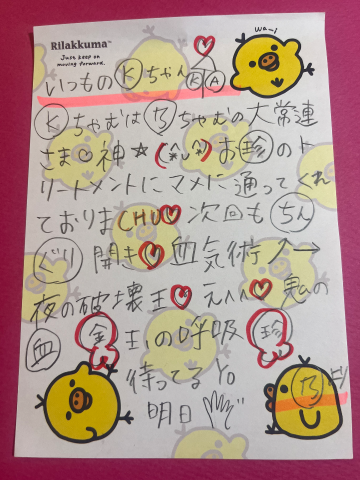 Rilakkuma™
Just keep on
moving forward.
wa-i
いつものKちゃん
K A
Kちゃむは乃ちゃむの大常連
さま神☆(^ᴗ^)お珍のト
リートメントにマメに通ってくれ
ておりまCHU♡次回もちん
ぐり開キ♡血気術ノ→
夜の破壊王♡えへへ♡鬼の
血 金玉の呼吸 珍
待ってるYo
明日
乃より